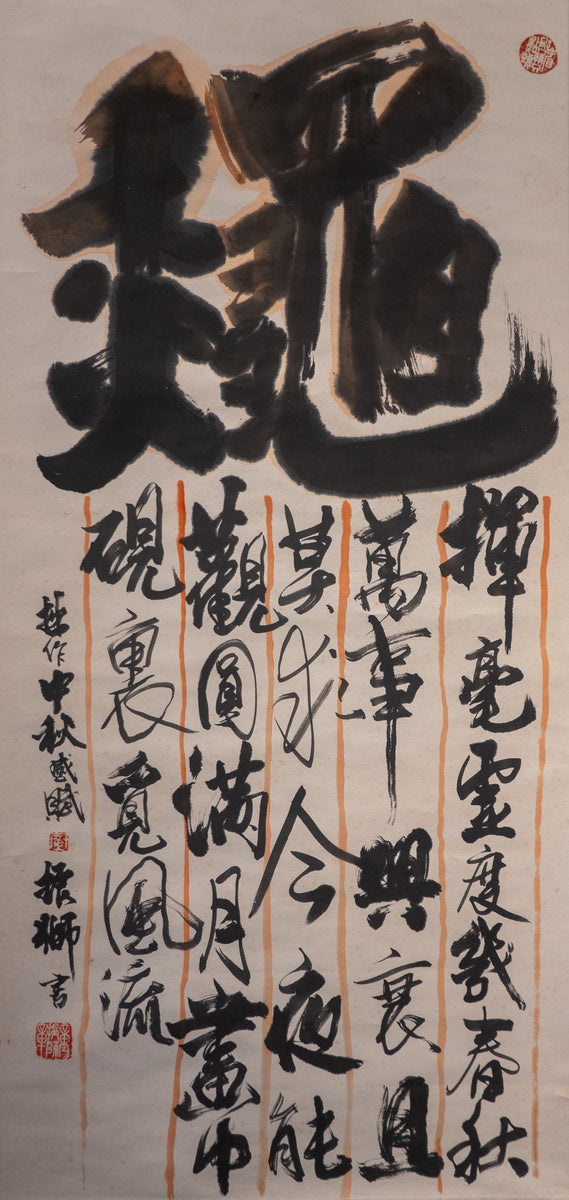 龝
揮毫虛度幾春秋
萬事興衰且
莫求今夜能
觀圓滿月畫中
硯裏覓風流
拙作中秋感賦 振獅書